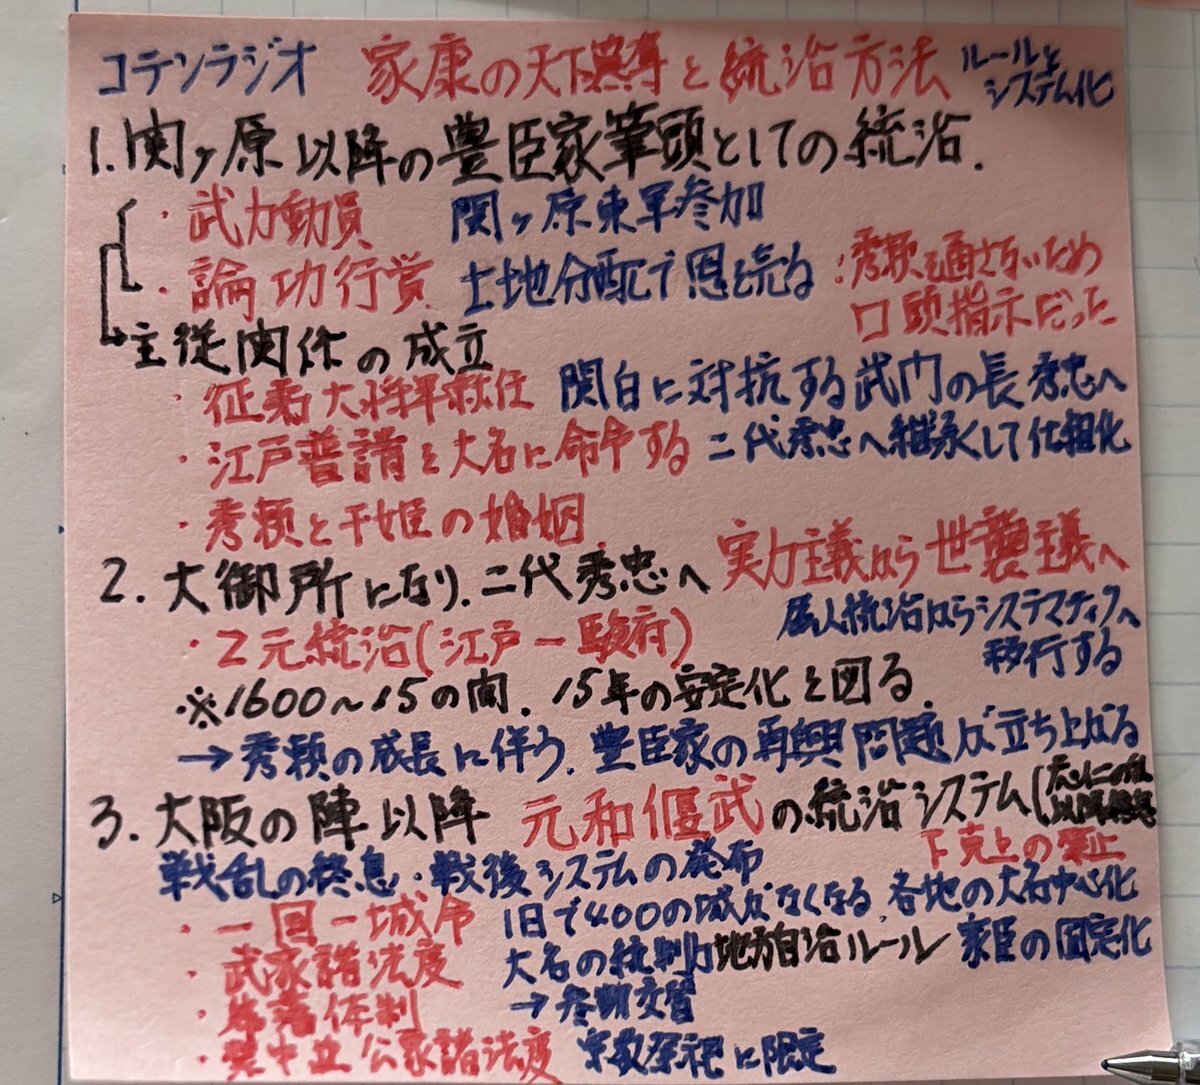 コテンラジオ 家康の天下 と統治方法 ルールと
システム化
1.関ヶ原以降の豊臣家筆頭としての統治.
・武力動員 関ヶ原東軍参加
・論功行賞 土地分配で恩を売る:秀頼を通さないため
口頭指示だった
→主従関係の成立
・征夷大将軍就任 関白に対抗する武門の長秀忠へ
・江戸普請を大名に命令する 二代秀忠へ継承して仕組化
・秀頼と千姫の婚姻
2.大御所になり、二代秀忠へ 実力主義から世襲主義へ
・2元統治(江戸ー駿府) 属人統治からシステマティクへ
移行する
・※1600~15の間、15年の安定化を図る.
→秀頼の成長に伴う、豊臣家の再興問題が立ち上がる
3.大阪の陣以降 元和偃武の統治システム(応仁の乱
以降終息
戦乱の終息・戦後システムの発布 下克上の禁止
・一国一城令 1日で400の城がなくなる、各地の大名中心化
・武家諸法度 大名の統制 地方自治ルール 家臣の固定化
・幕藩体制 →参勤交替
・禁中並公家諸法度 宗教祭祀に限定